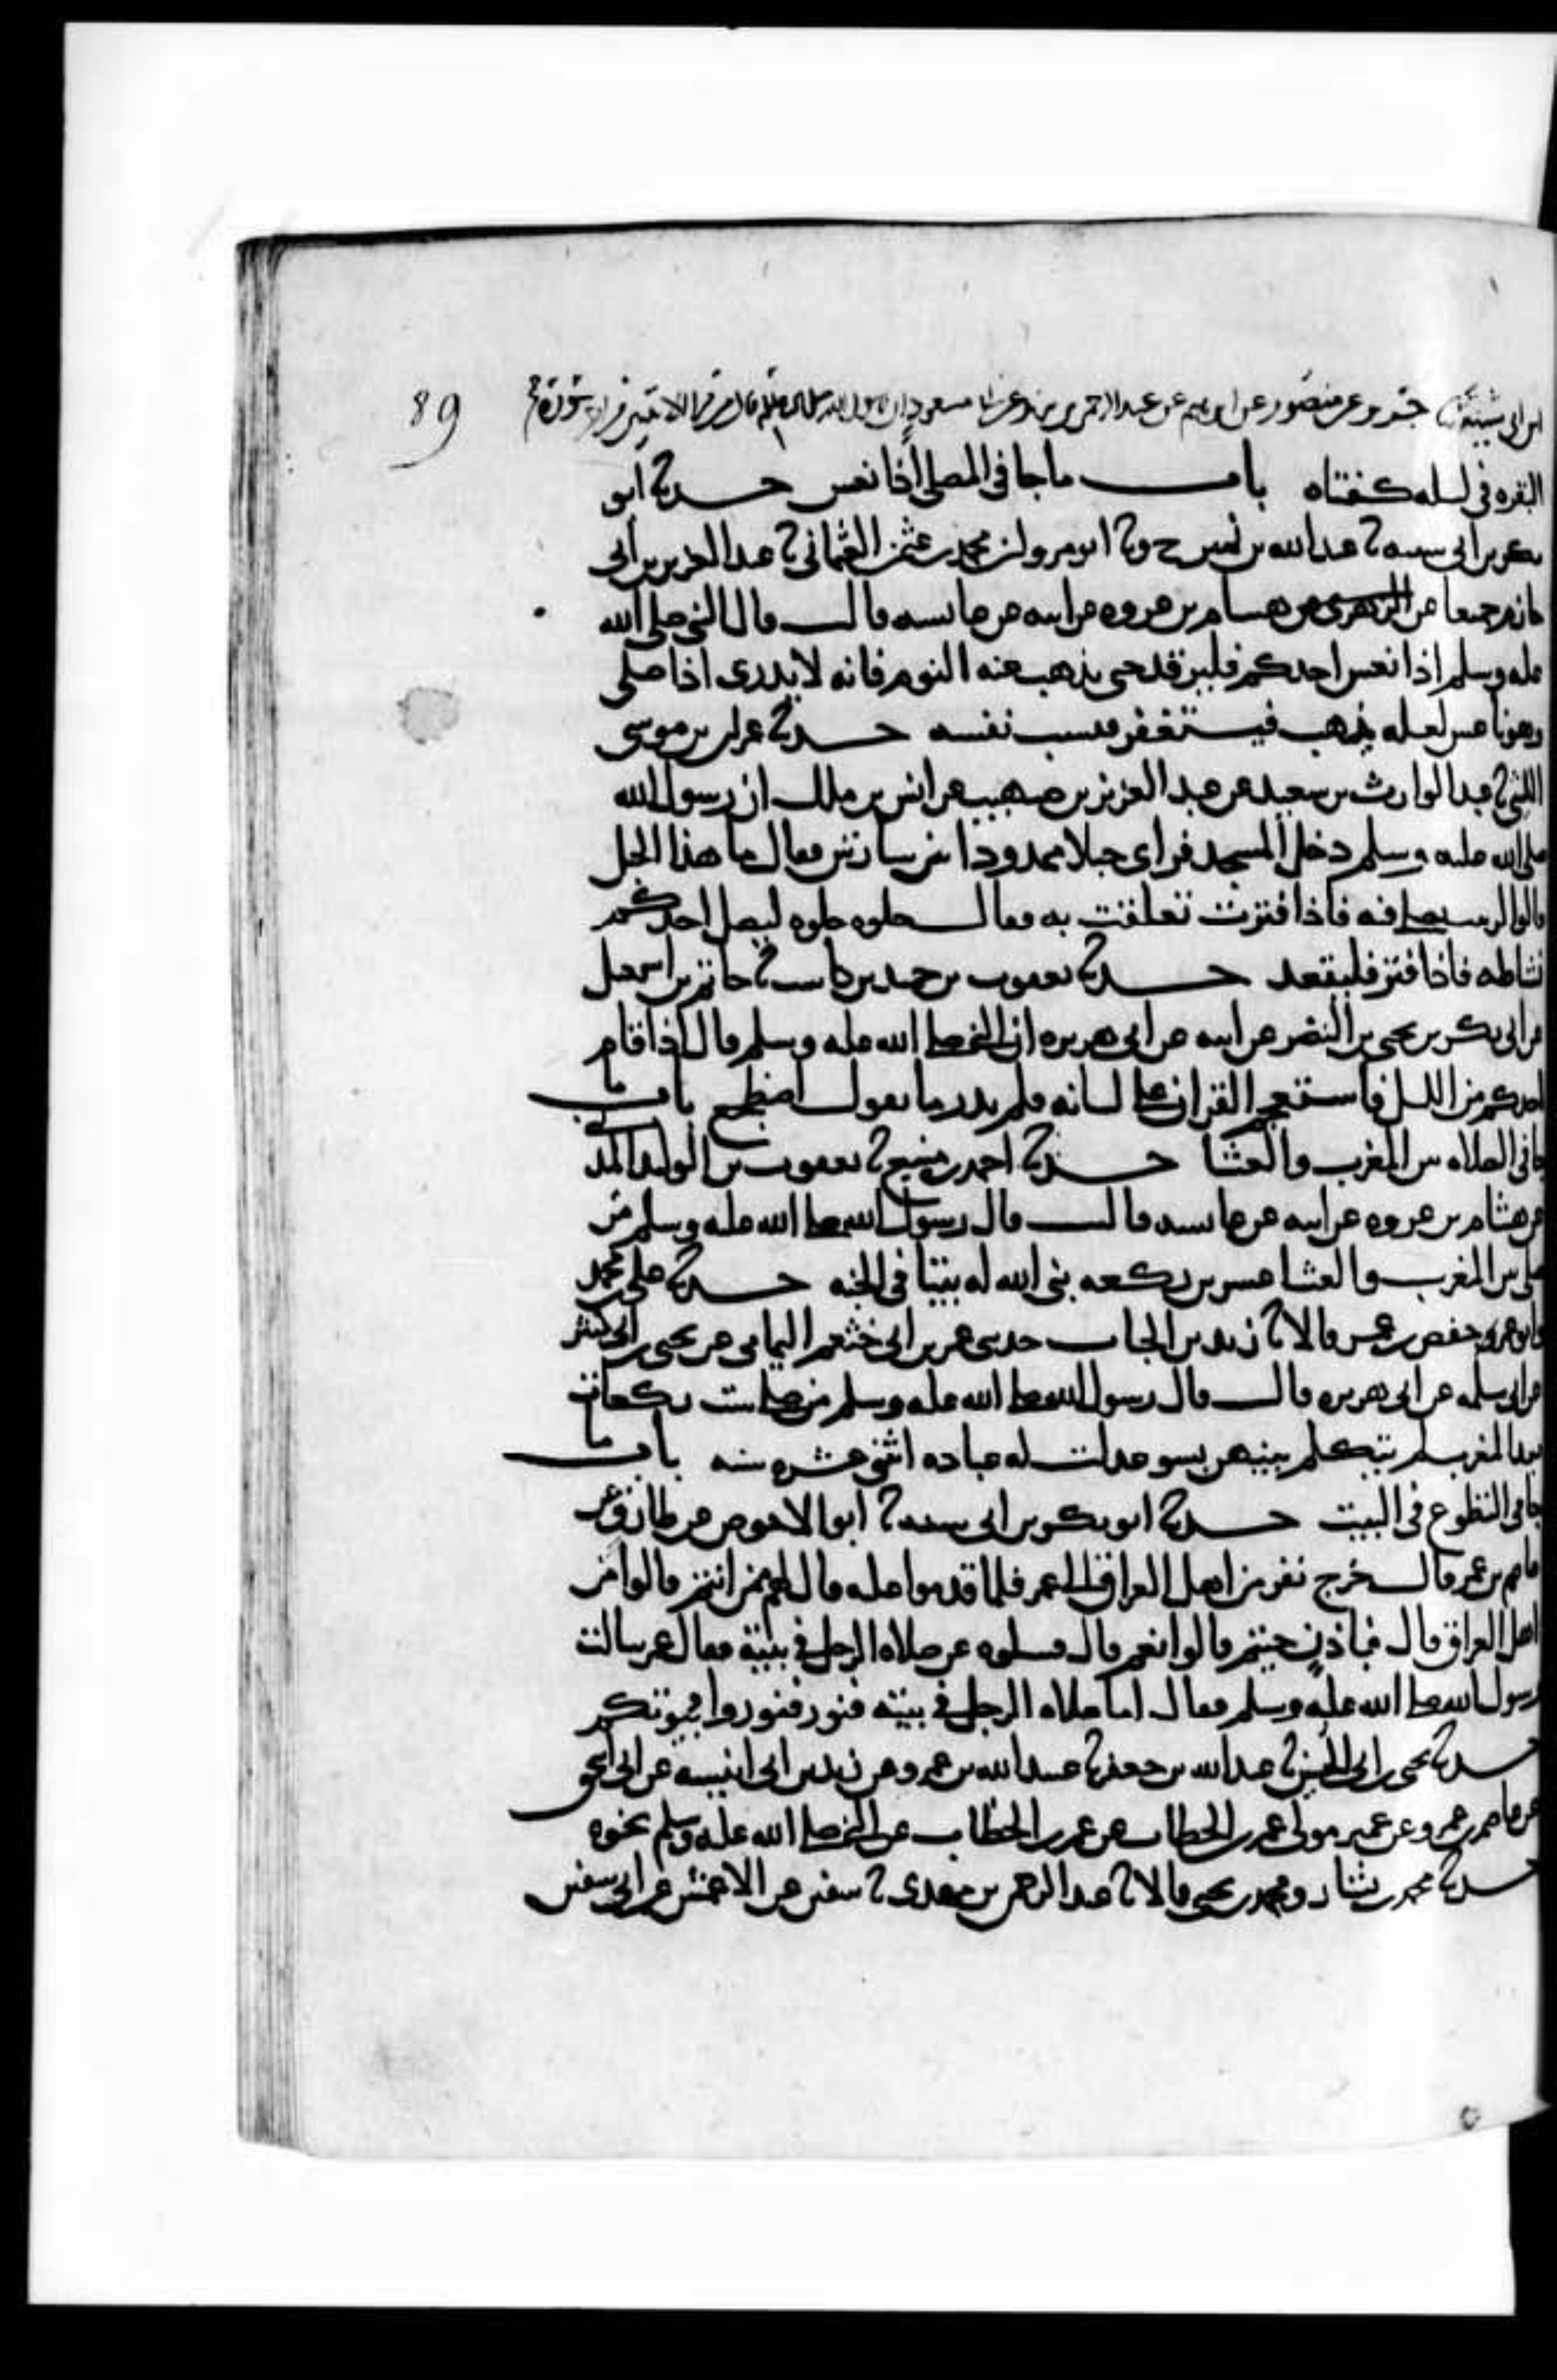 89
ابن ابي شيبة ثنا جرير عن منصور عن ابرهيم عن عبد الرحمن بن يزيد عن ابي مسعود ان رسول الله صلى الله عليه وسلم قال من قرا الايتين من اخر سورة
البقره في ليله كفتاه باب ما جا في المصلي اذا نعس حدثنا ابو
بكر بن ابي شيبه ثنا عبد الله بن نمير ح وثنا ابو مروان محمد بن عثمن العثماني ثنا عبد العزيز بن ابي
حازم جميعا عن هشام بن عروه عن ابيه عن عائشه قالت قال النبي صلى الله
عليه وسلم اذا نعس احدكم فليرقد حتى يذهب عنه النوم فانه لا يدري اذا صلى
وهو ناعس لعله يذهب فيستغفر فيسب نفسه حدثنا عمران بن موسى
الليثي ثنا عبد الوارث بن سعيد عن عبد العزيز بن صهيب عن انس بن ملك ان رسول الله
صلى الله عليه وسلم دخل المسجد فراى حبلا ممدودا بين ساريتين فقال ما هذا الحبل
قالوا لزينب تصلي فيه فاذا فترت تعلقت به فقال حلوه حلوه ليصل احدكم
نشاطه فاذا فتر فليقعد حدثنا يعقوب بن حميد بن كاسب ثنا حاتم بن اسمعيل
عن ابي بكر بن يحيى بن النضر عن ابيه عن ابي هريره ان النبي صلى الله عليه وسلم قال اذا قام
احدكم من الليل فاستعجم القران على لسانه فلم يدر ما يقول اضطجع باب ما
جا في الصلاه بين المغرب والعشا حدثنا احمد بن منيع ثنا يعقوب بن الوليد المديني
عن هشام بن عروه عن ابيه عن عائشه قالت قال رسول الله صلى الله عليه وسلم من
صلى بين المغرب والعشا عشرين ركعه بنى الله له بيتا في الجنه حدثنا علي بن محمد
وابو عمر حفص بن عمر قالا ثنا زيد بن الحباب حدثني عمر بن ابي خثعم اليمامي عن يحيى بن ابي كثير
عن ابي سلمه عن ابي هريره قال قال رسول الله صلى الله عليه وسلم من صلى ست ركعات
بعد المغرب لم يتكلم بينهن بسو عدلت له عباده اثنتي عشره سنه باب ما
جا في التطوع في البيت حدثنا ابو بكر بن ابي شيبه ثنا ابو الاحوص عن طارق عن
عاصم بن عمرو قال خرج نفر من اهل العراق الى عمر فلما قدموا عليه قال لهم ممن انتم قالوا من
اهل العراق قال فباذن جيتم قالوا نعم قال فسالوه عن صلاه الرجل في بيته فقال عمر سالت
رسول الله صلى الله عليه وسلم فقال اما صلاه الرجل في بيته فنور فنوروا بيوتكم
حدثنا محمد بن ابي الحسين ثنا عبد الله بن جعفر ثنا عبيد الله بن عمرو عن زيد بن ابي انيسه عن ابي اسحق
عن عاصم بن عمرو عن عمير مولى عمر بن الخطاب عن عمر بن الخطاب عن النبي صلى الله عليه وسلم نحوه
حدثنا محمد بن بشار ومحمد بن يحيى قالا ثنا عبد الرحمن بن مهدي ثنا سفين عن الاعمش عن ابي سفين